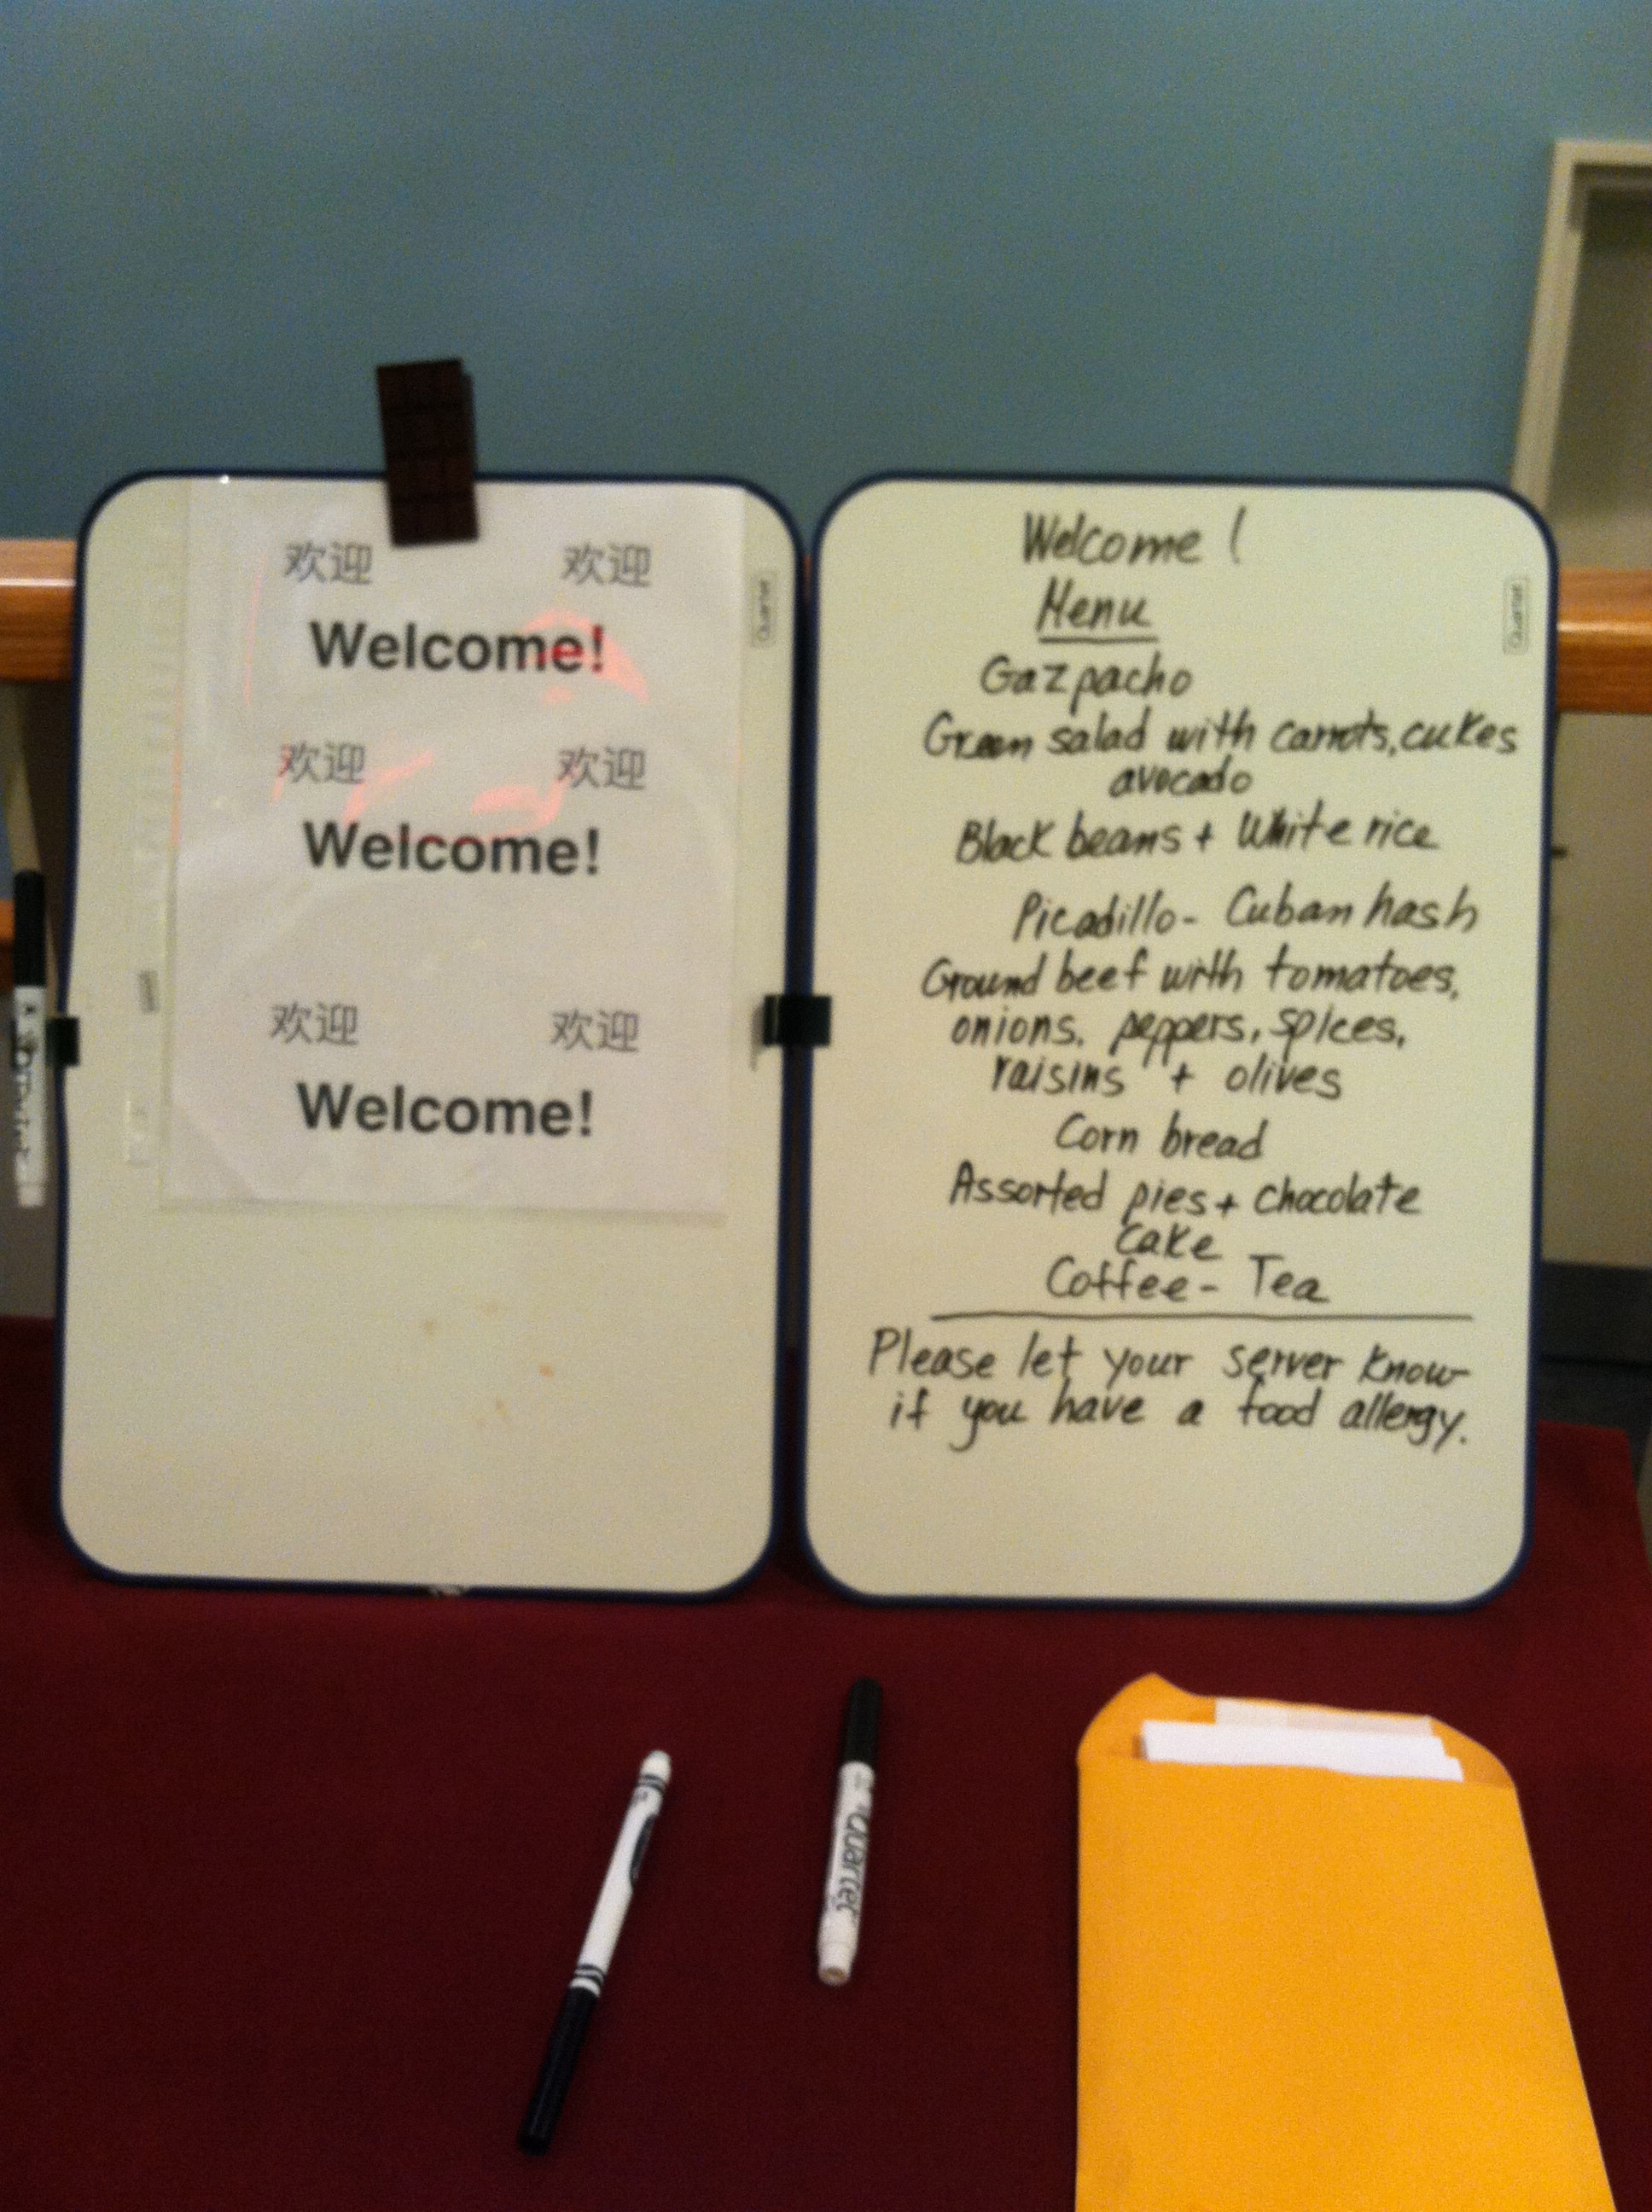 欢迎 欢迎
Welcome!
欢迎 欢迎
Welcome!
欢迎 欢迎
Welcome!
Quartet
Welcome!
Menu
Gazpacho
Green salad with carrots, cukes
avocado
Black beans + White rice
Picadillo - Cuban hash
Ground beef with tomatoes,
onions, peppers, spices,
raisins + olives
Corn bread
Assorted pies + chocolate
cake
Coffee - Tea
Please let your server know
if you have a food allergy.
Quartet
Quartet
Quartet